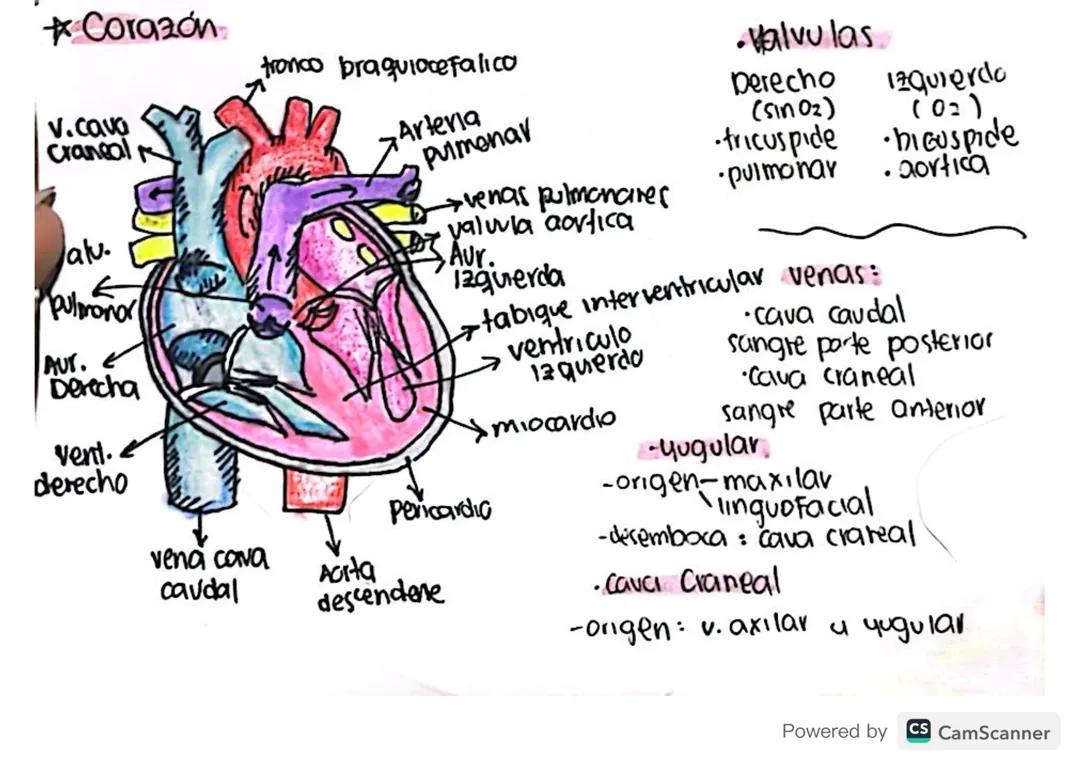 * Corazón.
tronco braquiocefalico
v.cava
craneal
Arteria
pulmonar
venas pulmonares
valvula aortica
Aur.
Izquierda
tabique interventricular
ventriculo
izquierdo
miocardio
Pericardio
Aorta
descendene
vena cava
caudal
Vent.
derecho
Aur.
Derecha
alv.
pulmonar
•Valvulas.
Derecho
(sin O2)
•tricuspide
•pulmonar
Izquierdo
(O2)
•bicuspide
•aortica
venas:
•cava caudal
sangre parte posterior
•cava craneal
sangre parte anterior
-yugular.
-origen-maxilar
\linguofacial
-desemboca: cava craneal
•cava Craneal
-origen: v. axilar y yugular
Powered by CS CamScanner